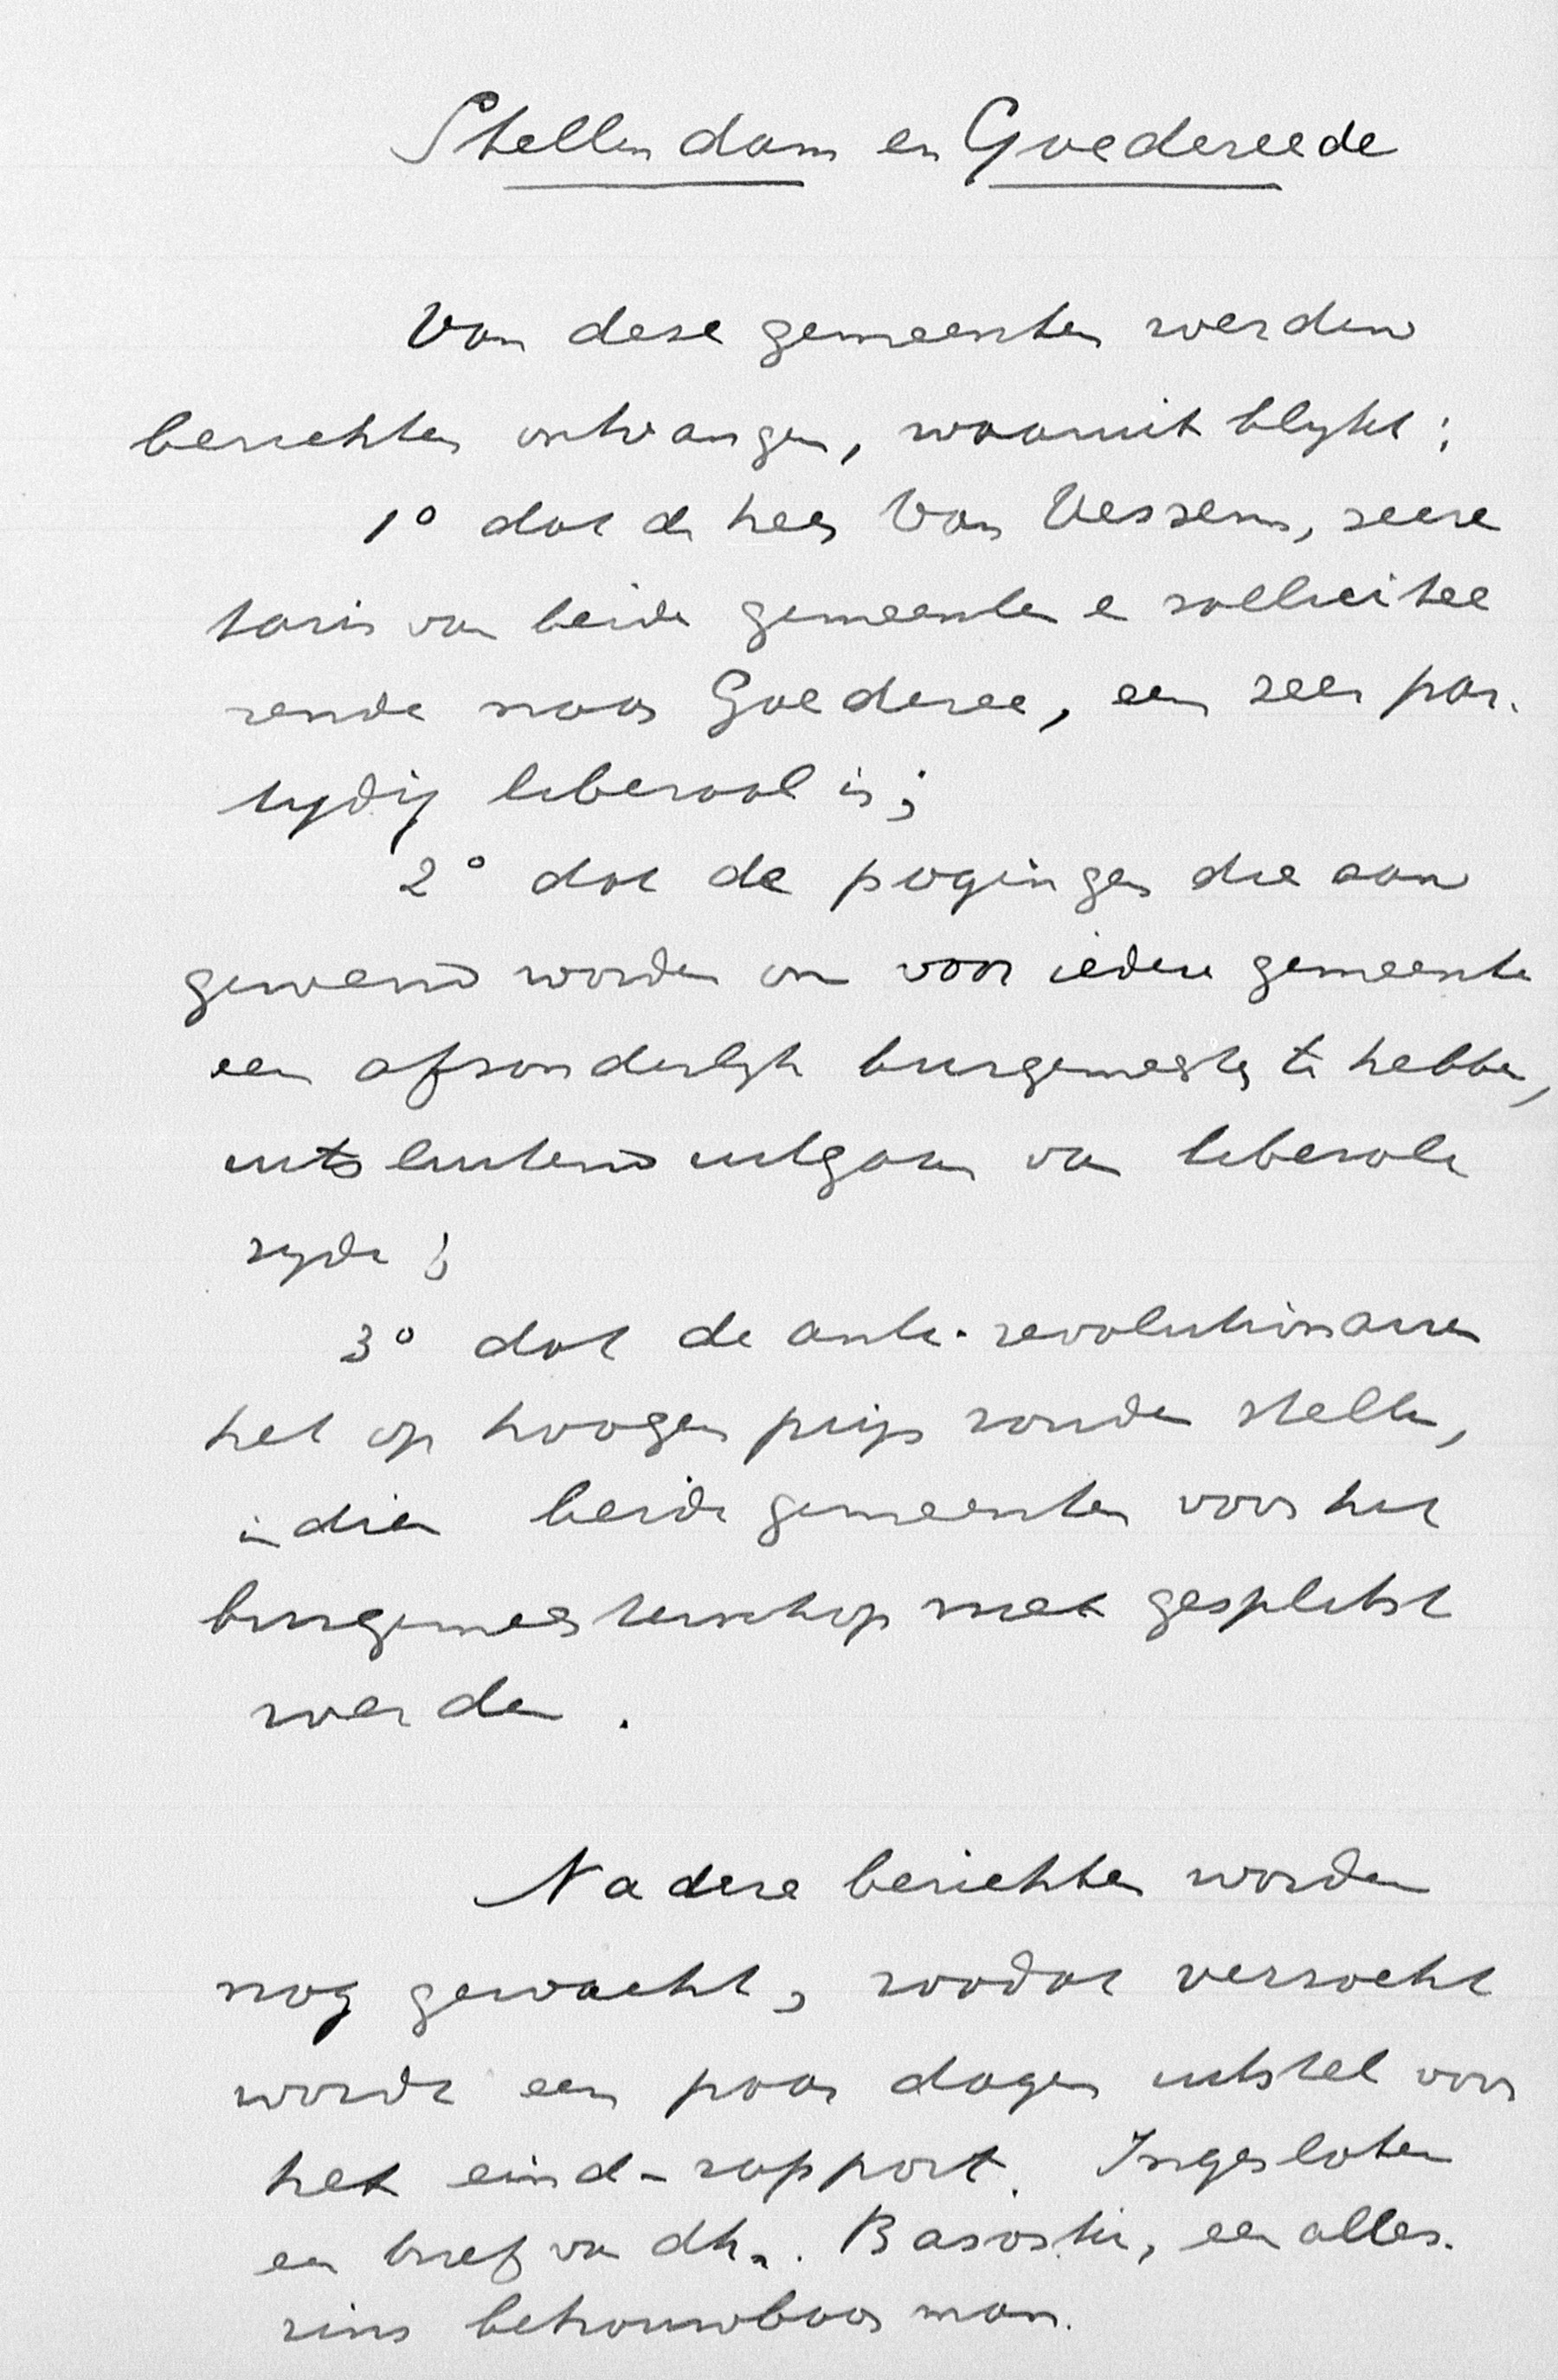 Stellendam en Goedereede
Van deze gemeenten werden
berichten ontvangen, waaruit blijkt:
1° dat de heer Van Vessem, secre
taris van beide gemeenten en sollicitee
rende naar Goederee, een zeer par-
tijdig liberaal is;
2° dat de pogingen die aan
gewend worden om voor iedere gemeente
een afzonderlijk burgemeester te hebben,
uitsluitend uitgaan van liberale
zijde;
3° dat de anti-revolutionairen
het op hoogen prijs zouden stellen,
indien beide gemeenten voor het
burgemeesterschap niet gesplitst
werden.
Nadere berichten worden
nog gewacht, zoodat verzocht
wordt een paar dagen uitstel voor
het eind-rapport. Ingesloten
een brief van dhr. een alles-
zins betrouwbaar man.